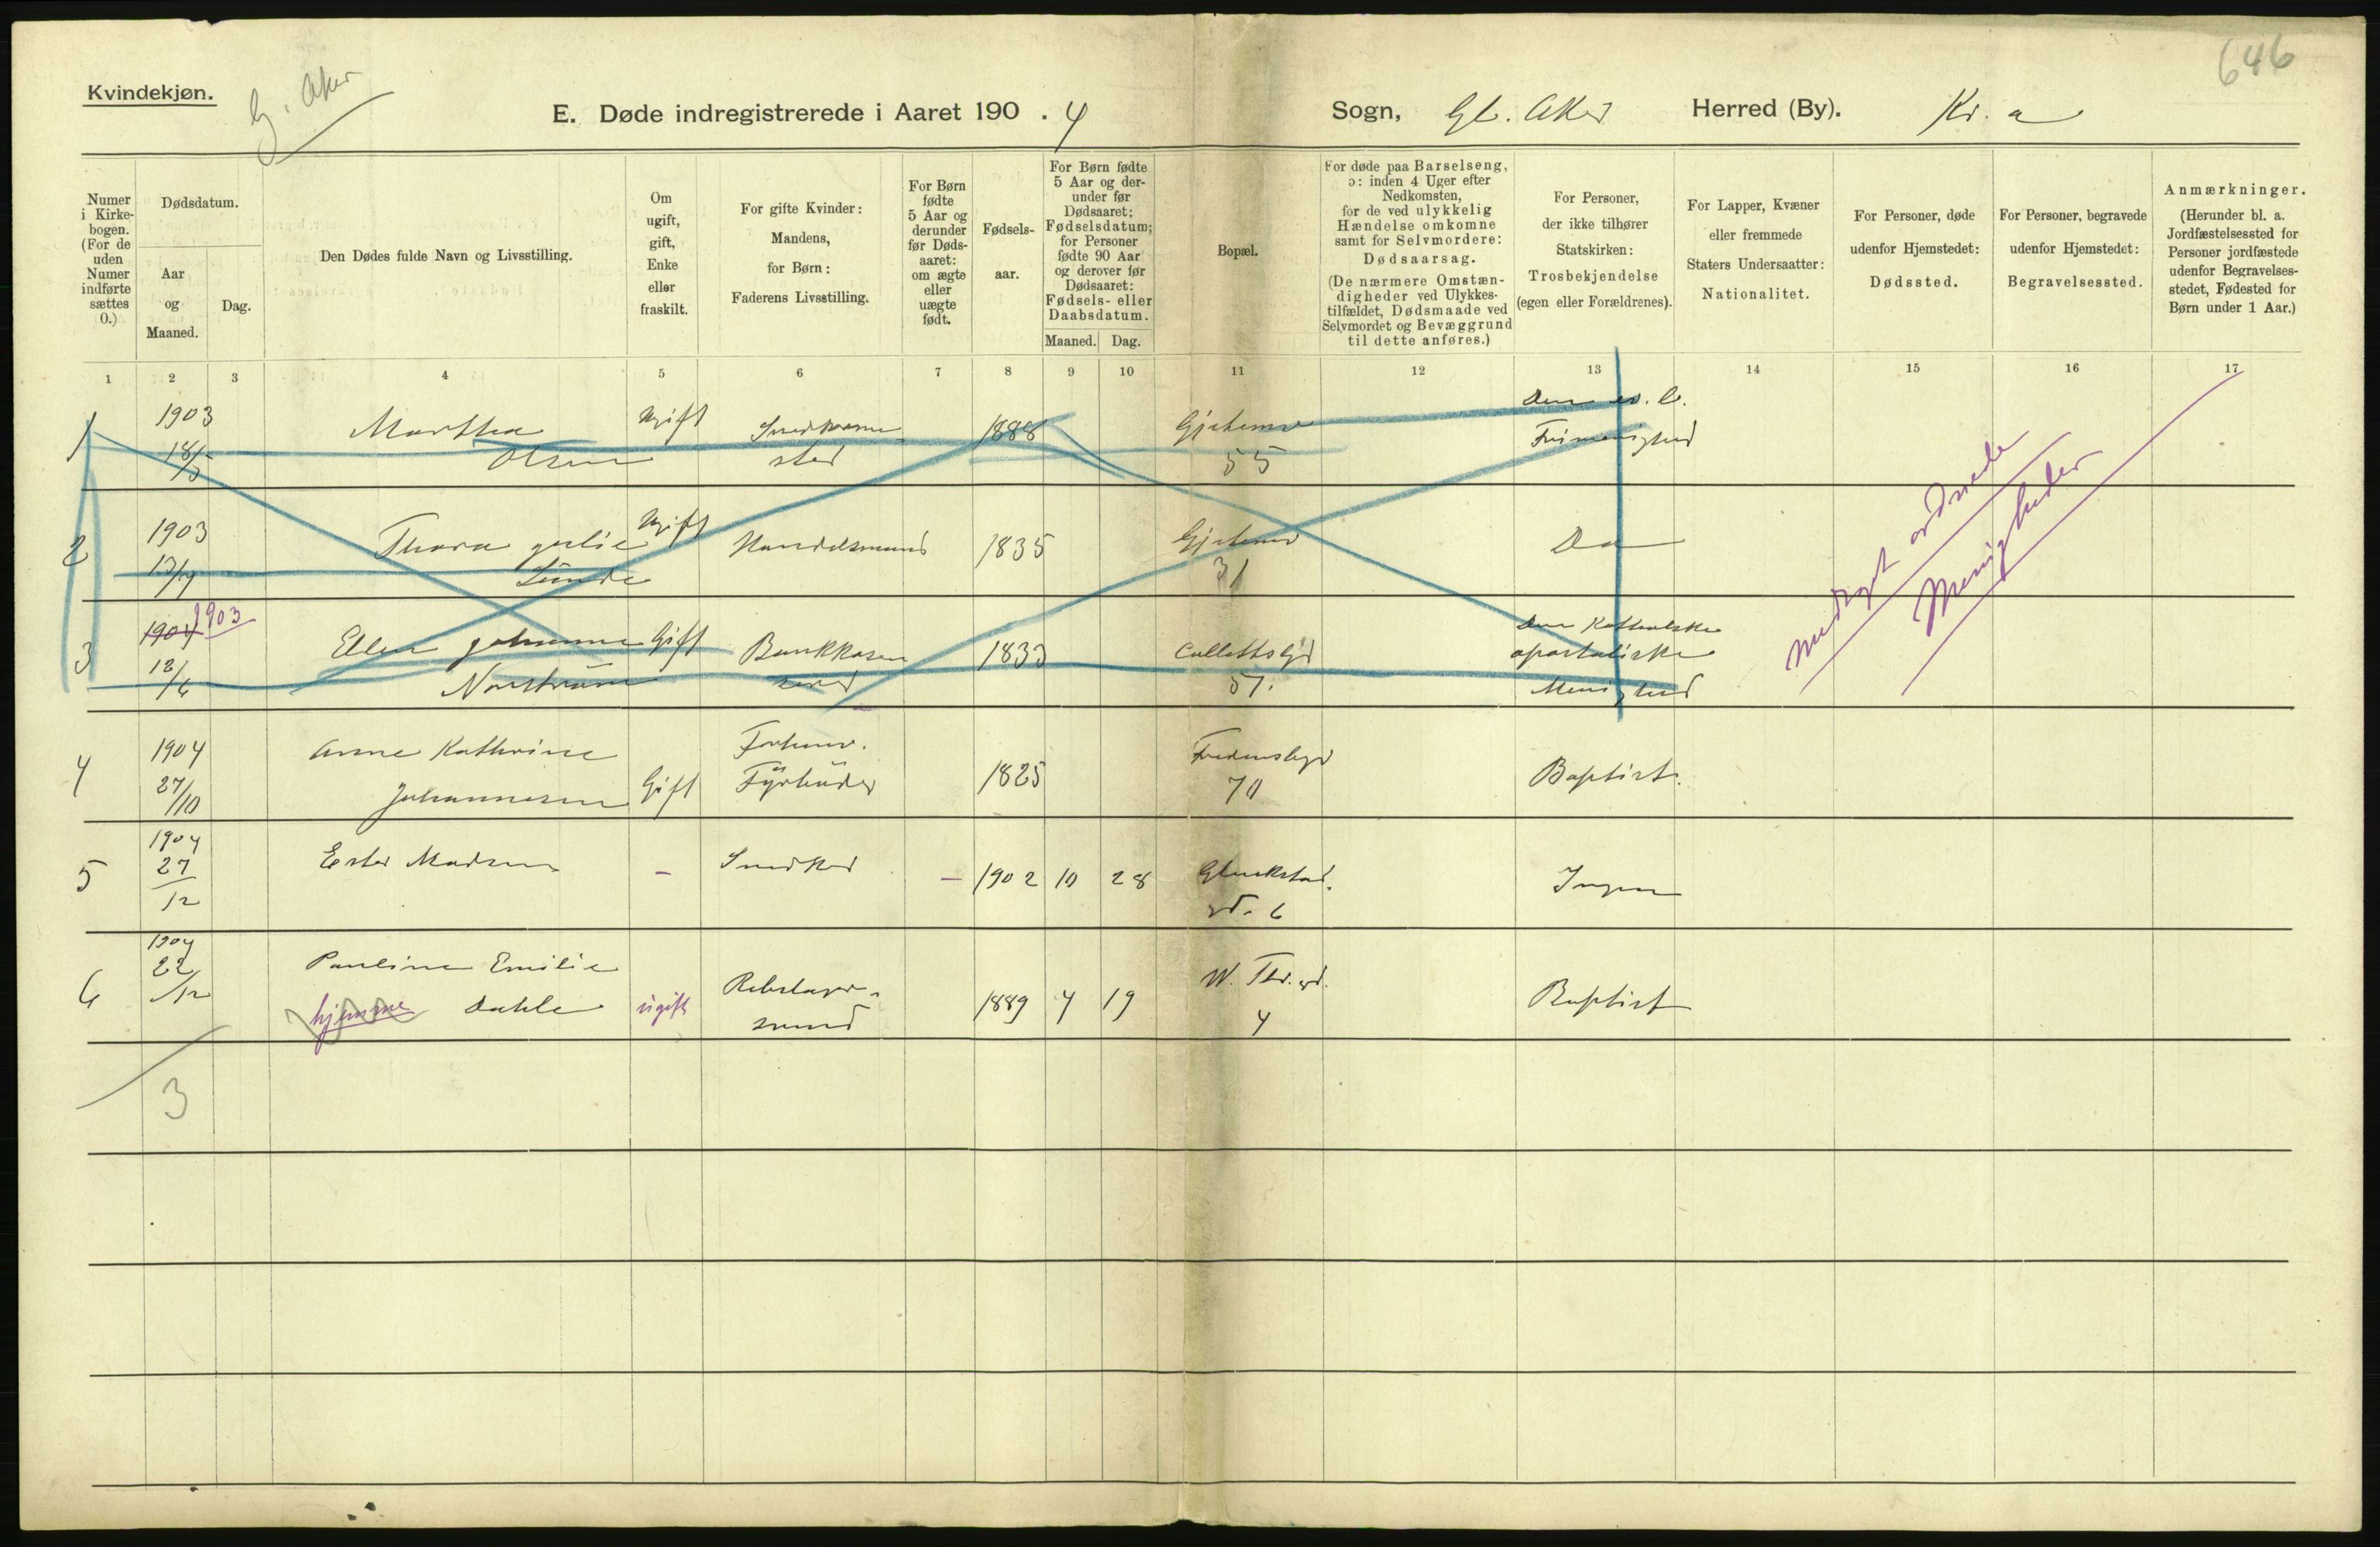 646
Kvindekjøn.
G. Aker
E. Døde indregistrerede i Aaret 190 . 4
Sogn, Gl. Aker Herred (By). Kr. a
Numer i Kirke- bogen. (For de uden Numer indførte sættes 0.)
Dødsdatum.
Aar og Maaned.
Dag.
Den Dødes fulde Navn og Livsstilling.
Om ugift, gift, Enke eller fraskilt.
For gifte Kvinder: Mandens, for Børn: Faderens Livsstilling.
For Børn fødte 5 Aar og derunder før Døds- aaret: om ægte eller uægte født.
Fødsels- aar.
For Børn fødte 5 Aar og der- under før Dødsaaret: Fødselsdatum; for Personer fødte 90 Aar og derover før Dødsaaret: Fødsels- eller Daabsdatum.
Maaned. Dag.
Bopæl.
For døde paa Barselseng, ɔ: inden 4 Uger efter Nedkomsten, for de ved ulykkelig Hændelse omkomne samt for Selvmordere: Dødsaarsag. (De nærmere Omstæn- digheder ved Ulykkes- tilfældet, Dødsmaade ved Selvmordet og Bevæggrund til dette anføres.)
For Personer, der ikke tilhører Statskirken: Trosbekjendelse (egen eller Forældrenes).
For Lapper, Kvæner eller fremmede Staters Undersaatter: Nationalitet.
For Personer, døde udenfor Hjemstedet: Dødssted.
For Personer, begravede udenfor Hjemstedet: Begravelsessted.
Anmærkninger. (Herunder bl. a. Jordfæstelsessted for Personer jordfæstede udenfor Begravelses- stedet, Fødested for Børn under 1 Aar.)
1 2 3 4 5 6 7 8 9 10 11 12 13 14 15 16 17
1 1903 18/5 Martha Olsen Ugift 1888 55 Frimenighed
2 1903 13/7 Thora Julie Lunde Ugift Handelsmand 1835 31 Do
3 1904 1903 12/6 Ellen Johanne Gift Bankkasserer 1833 Collettsgd 57. Den Katholske apostoliske Menighed
medtaget ordnede
Menigheder
4 1904 27/10 Anne Kathrine Johannesen Gift Forhenv. Fyrbøder 1825 Fredensbgd 70 Baptist.
5 1904 27/12 Ester Madsen - Snedker - 1902 10 28 Gluckstad. gd. 6 Ingen
6 1904 22/12 Pauline Emilie hjemme Dahle ugift 1889 4 19 W. Thr. gd. 4 Baptist
3